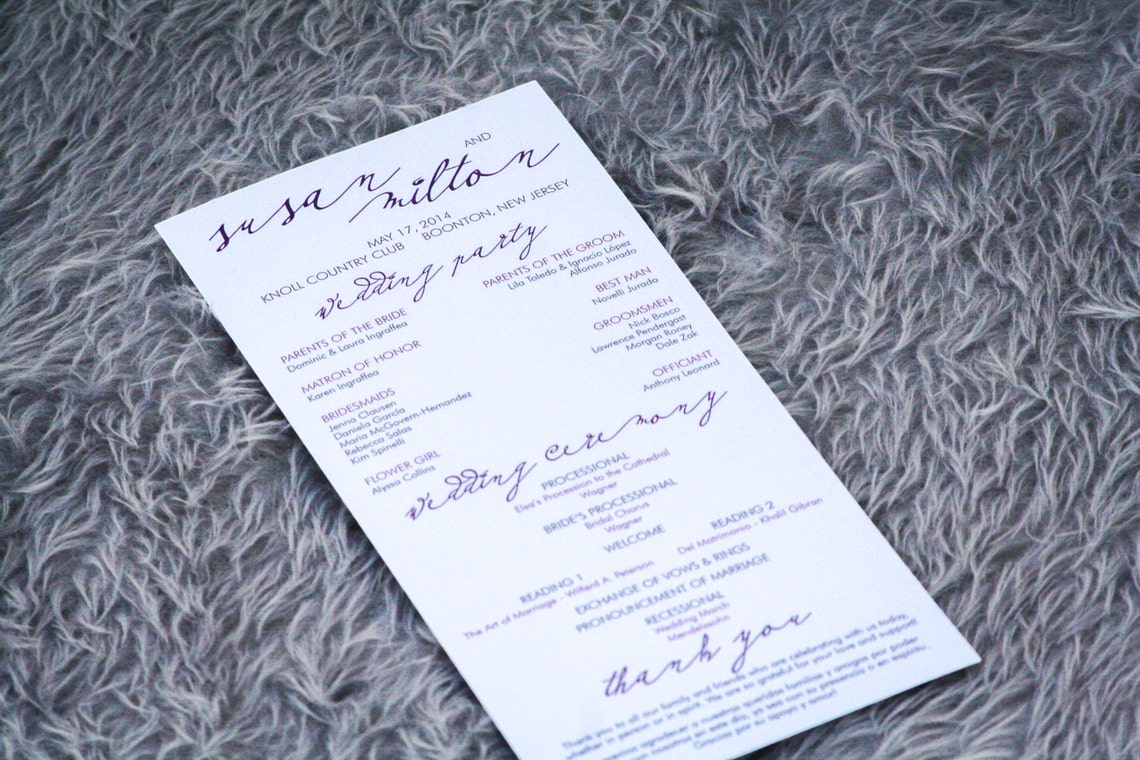 susan AND milton
MAY 17, 2014
KNOLL COUNTRY CLUB BOONTON, NEW JERSEY
wedding party
PARENTS OF THE BRIDE
Dominic & Laura Ingraffea
MATRON OF HONOR
Karen Ingraffea
BRIDESMAIDS
Jenna Clausen
Daniela García
Maria McGovern-Hernandez
Rebecca Salas
Kim Spinelli
FLOWER GIRL
Alyssa Collins
PARENTS OF THE GROOM
Lila Toledo & Ignacio López
Alfonso Jurado
BEST MAN
Novelli Jurado
GROOMSMEN
Nick Bosco
Lawrence Pendergast
Morgan Roney
Dale Zak
OFFICIANT
Anthony Leonard
wedding ceremony
PROCESSIONAL
Elsa's Procession to the Cathedral
Wagner
BRIDE'S PROCESSIONAL
Bridal Chorus
Wagner
WELCOME
READING 1
The Art of Marriage - Wilferd A. Peterson
READING 2
Del Matrimonio - Khalil Gibran
EXCHANGE OF VOWS & RINGS
PRONOUNCEMENT OF MARRIAGE
RECESSIONAL
Wedding March
Mendelssohn
thank you
Thank you to all our family and friends who are celebrating with us today,
whether in person or in spirit. We are so grateful for your love and support!
agradecer a nuestros queridos familias y amigos por poder
nosotros en este día, ya sea con su presencia o en espíritu.
Gracias por su apoyo y amor!